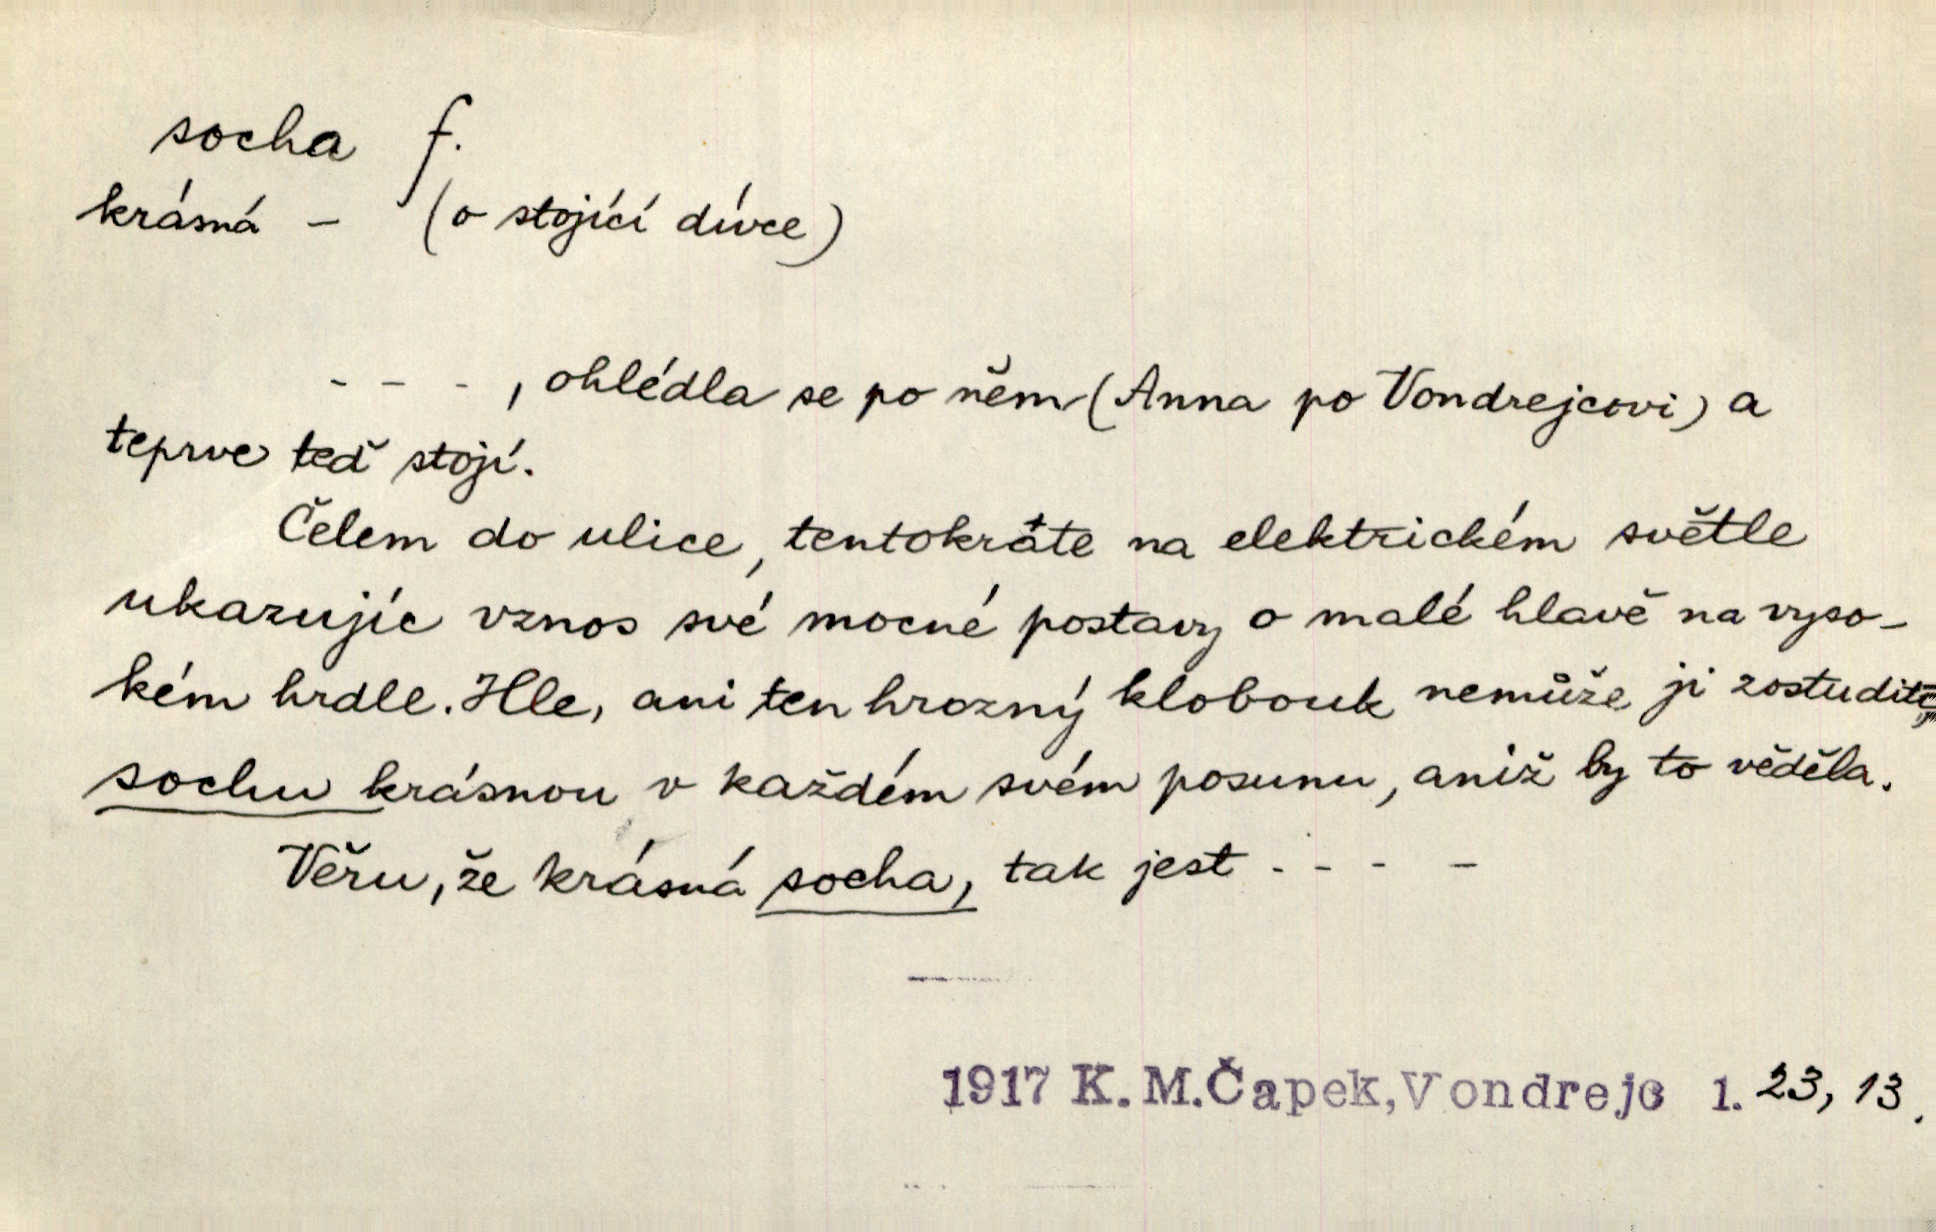 socha f.
krásná – (o stojící dívce)
- - - , ohlédla se po něm (Anna po Vondrejcovi) a
teprve teď stojí.
Čelem do ulice, tentokráte na elektrickém světle
ukazujíc vznos své mocné postavy o malé hlavě na vyso-
kém hrdle. Hle, ani ten hrozný klobouk nemůže ji zostuditi,
sochu krásnou v každém svém posunu, aniž by to věděla.
Věru, že krásná socha, tak jest - - - -
1917 K. M. Čapek, Vondrejc 1. 23, 13.